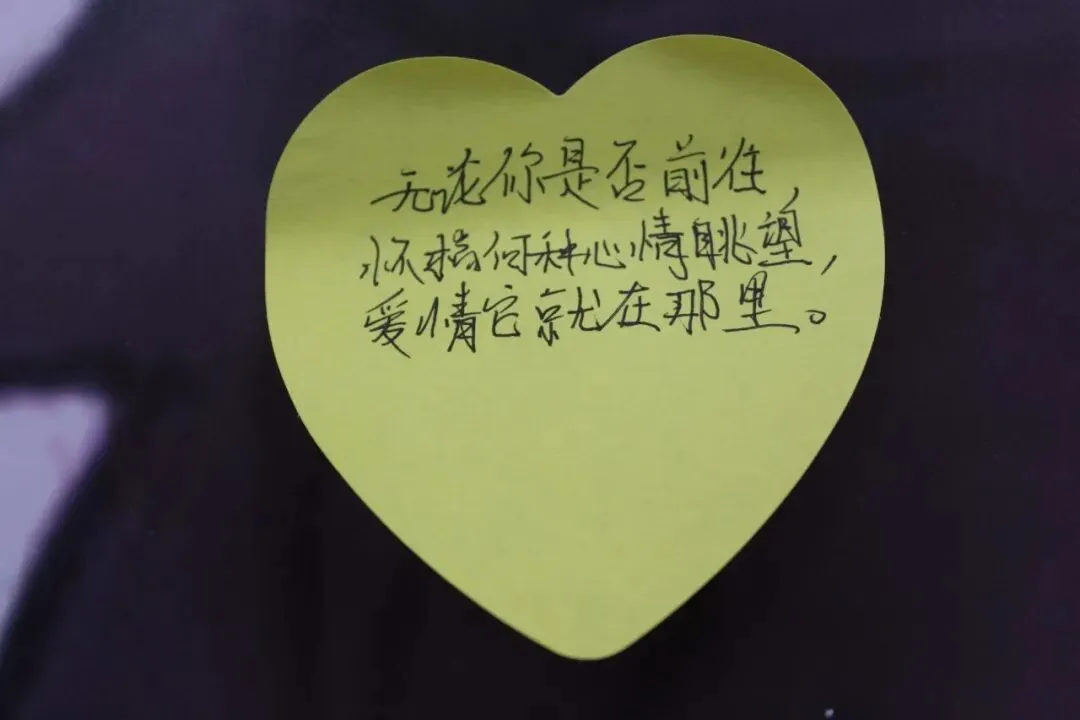 无论你是否前往，
怀揣何种心情眺望，
爱情它就在那里。